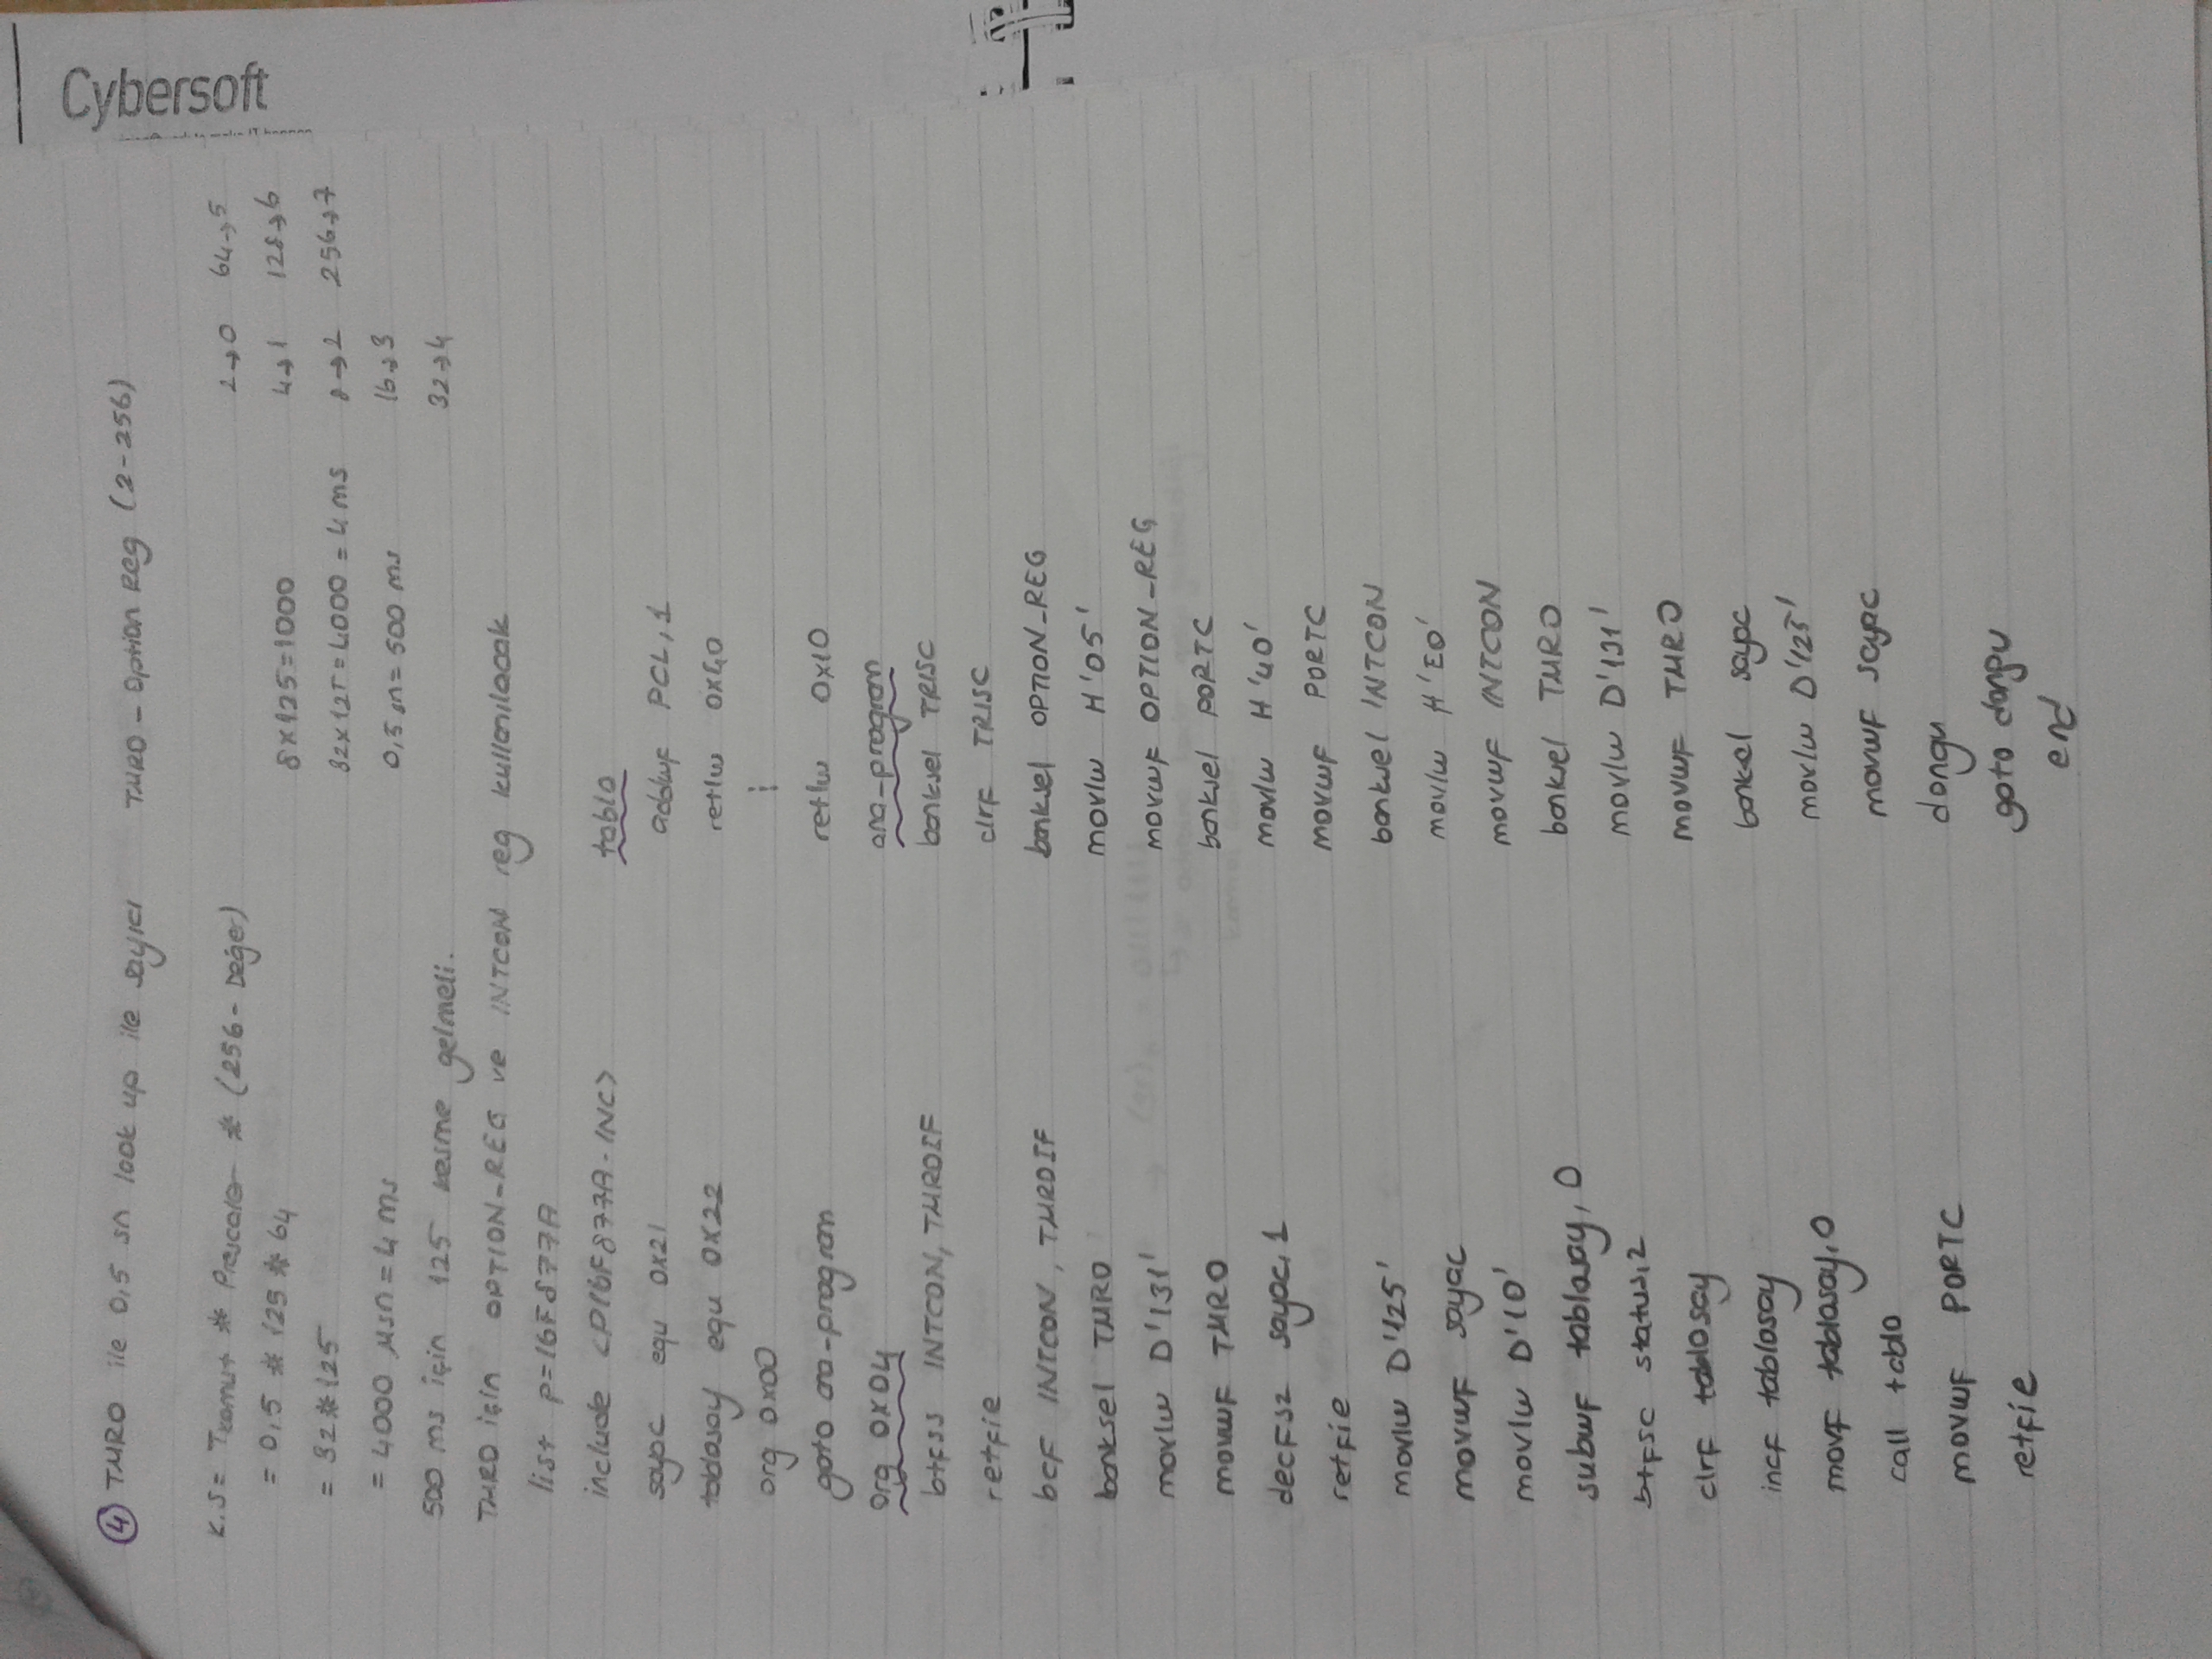 ④ TMR0 ile 0,5 sn look up ile sayıcı
TMR0 - Option Reg (2-256)
K.S = Tkomut * Prescaler * (256 - Değer)
= 0,5 * 125 * 64
= 32*125
= 4000 µsn = 4 ms
8x125=1000
32x125=4000 = 4 ms
0,5 sn = 500 ms
2→0 64→5
4→1 128→6
8→2 256→7
16→3
32→4
500 ms için 125 kesme gelmeli.
TMR0 için OPTION-REG ve INTCON reg kullanılacak
list p=16F877A
include <P16F877A.INC>
sayac equ 0x21
tablosay equ 0x22
org 0x00
goto ana-program
org 0x04
btfss INTCON, TMR0IF
retfie
bcf INTCON, TMR0IF
banksel TMR0
movlw D'131'
movwf TMR0
decfsz sayac,1
retfie
movlw D'125'
movwf sayac
movlw D'10'
subwf tablosay, 0
btfsc status,2
clrf tablosay
incf tablosay
movf tablosay,0
call tablo
movwf PORTC
retfie
tablo
addwf PCL,1
retlw 0x40
⋮
retlw 0x10
ana-program
banksel TRISC
clrf TRISC
banksel OPTION_REG
movlw H'05'
movwf OPTION_REG
banksel PORTC
movlw H'40'
movwf PORTC
banksel INTCON
movlw H'E0'
movwf INTCON
banksel TMR0
movlw D'131'
movwf TMR0
banksel sayac
movlw D'125'
movwf sayac
dongu
goto dongu
end
Cybersoft